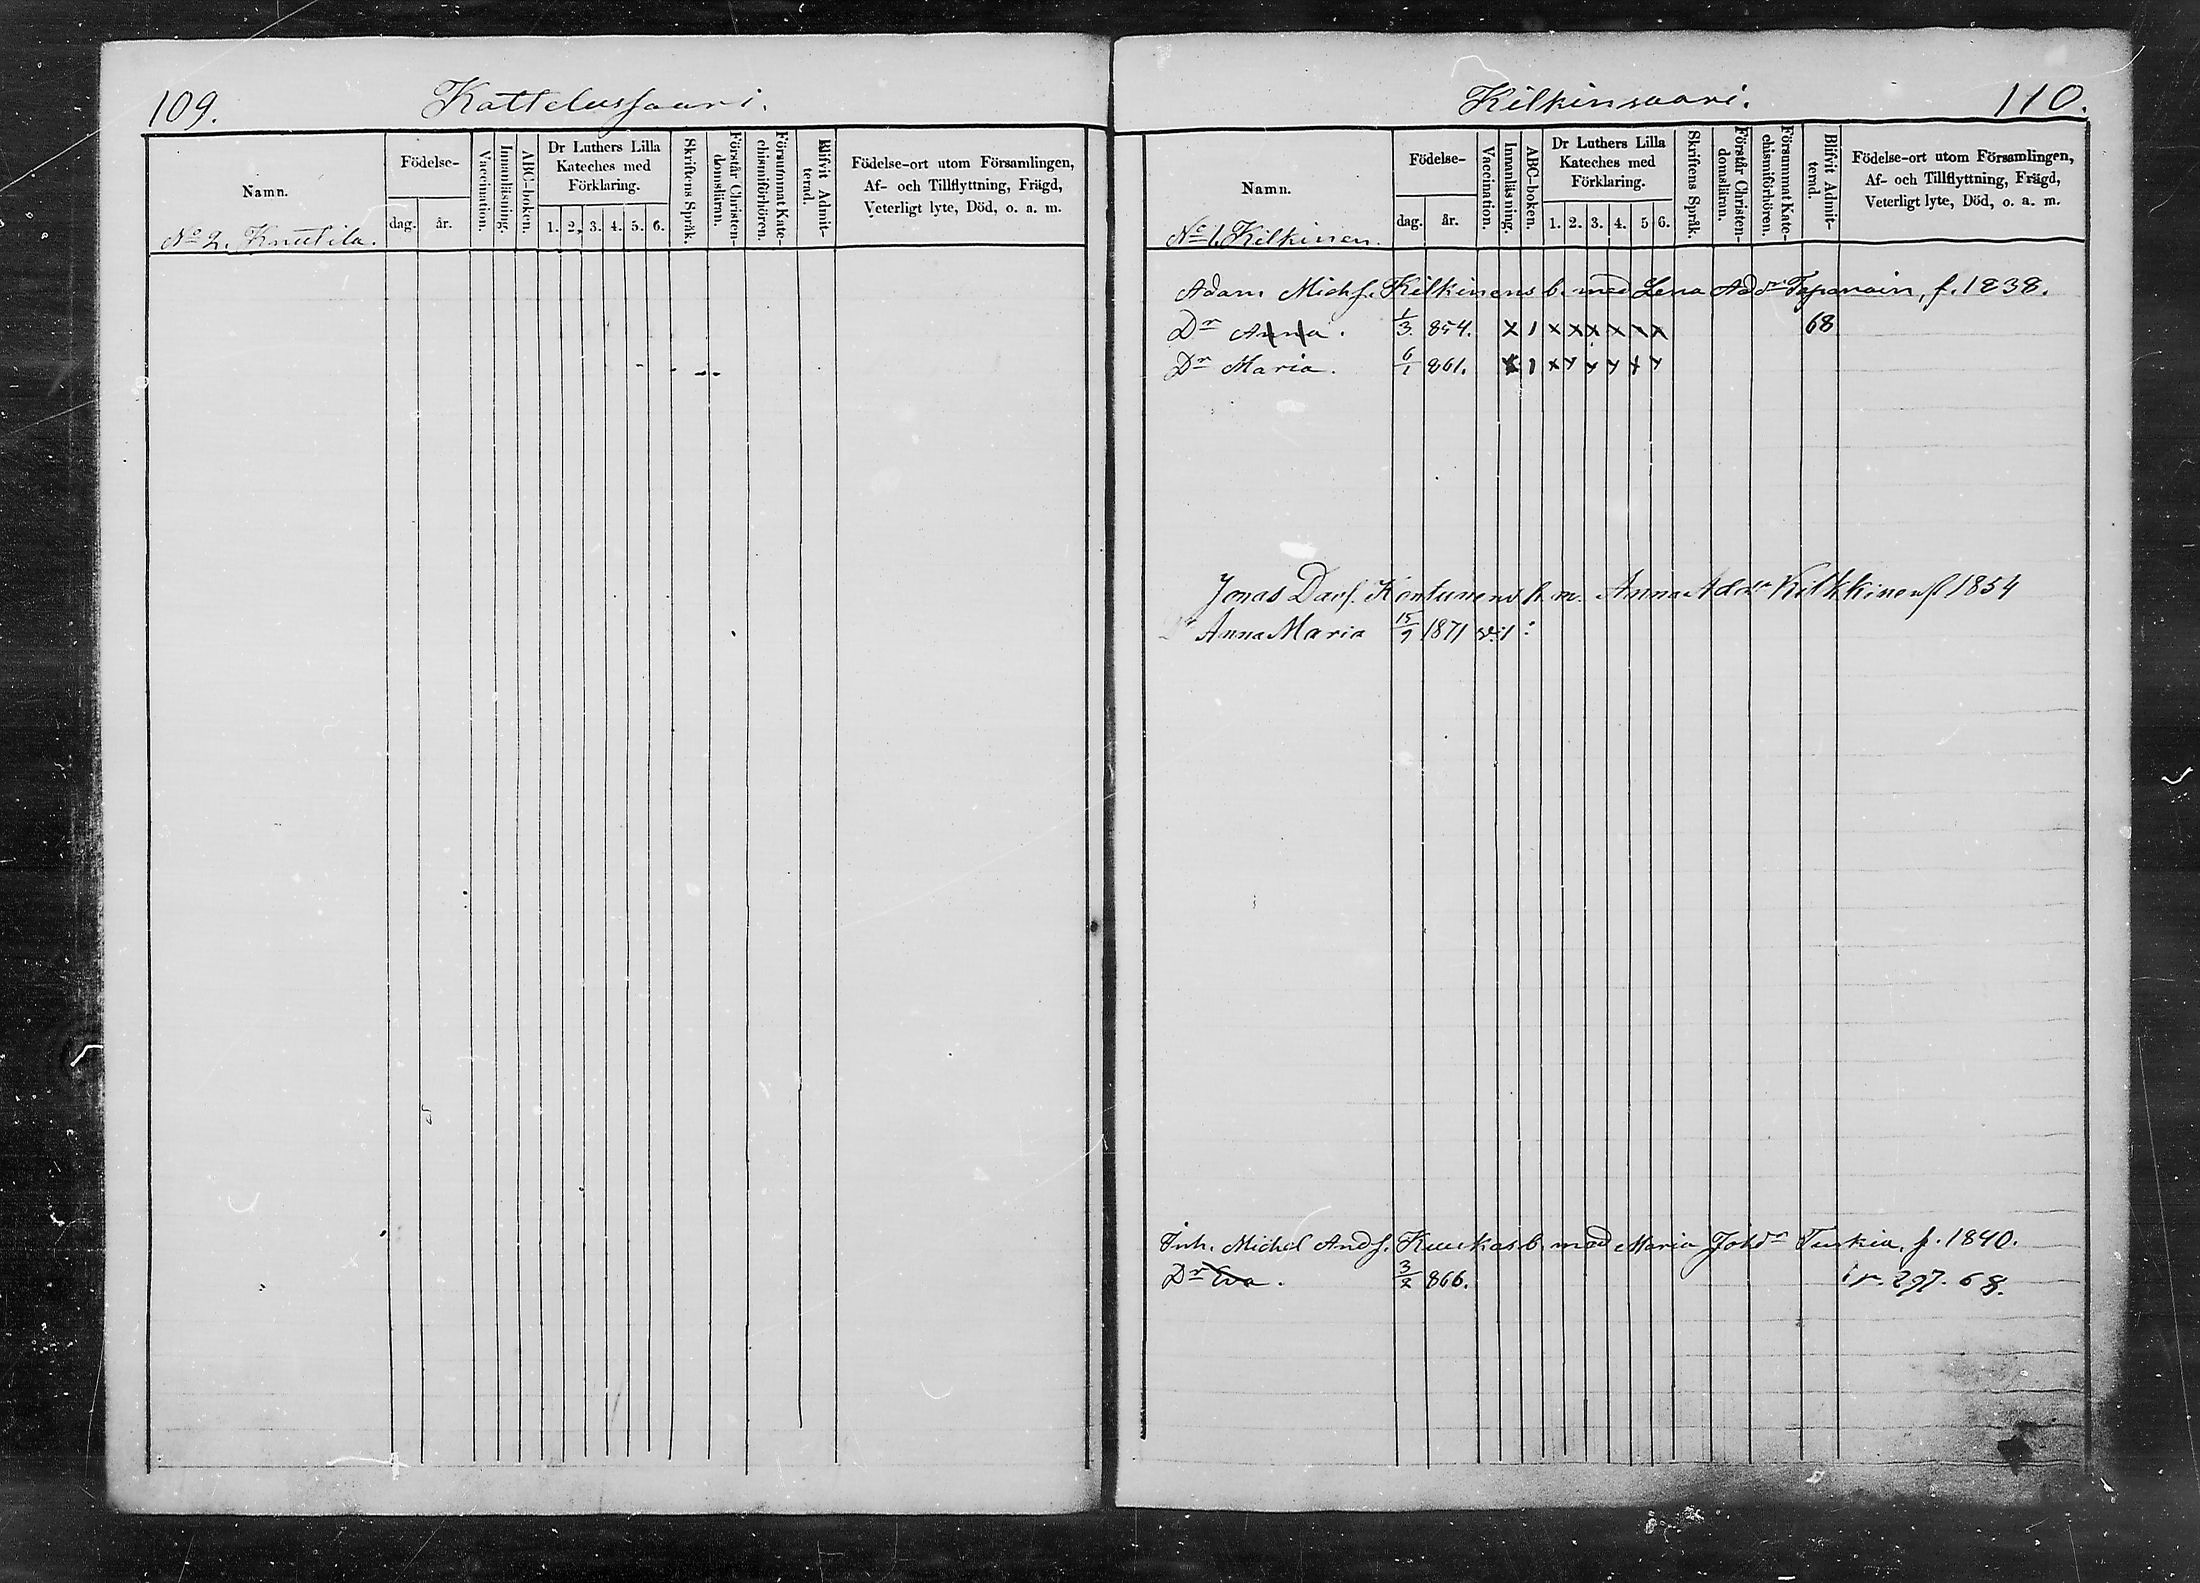 109.
Kattelussaari.
Namn.
Födelse-
dag.
år.
Vaccination.
Innanläsning.
ABC-boken.
Dr Luthers Lilla Kateches med Förklaring.
1. 2. 3. 4. 5. 6.
Skriftens Språk.
Förstår Christendomsläran.
Försummat Katechismiförhören.
Blifvit Admitterad.
Födelse-ort utom Församlingen,
Af- och Tillflyttning, Frägd,
Veterligt lyte, Död, o. a. m.
No 2. Knuutila.
Kilkinsaari.
110.
Namn.
Födelse-
dag.
år.
Vaccination.
Innanläsning.
ABC-boken.
Dr Luthers Lilla
Kateches med
Förklaring.
1. 2. 3. 4. 5 6.
Skriftens Språk.
Förstår Christendomsläran.
Försummat Katechismiförhören.
Blifvit Admitterad.
Födelse-ort utom Församlingen,
Af- och Tillflyttning, Frägd,
Veterligt lyte, Död, o. a. m.
No 1. Kilkinen.
Adam Michs. Kilkinens b. med Lena Addr Taponain, f. 1838.
Dr Anna. 1/3. 854. x 1 x x x x x x 68
Dr Maria. 6/1 861. x 1 x x x x x x
Jonas Davs. Kontunens b. m. Anna Addr Kilkkinen f 1854
Anna Maria 15/9 1871
Inh. Michel Ands. Kuukas b. med Maria Johdr Turkia, f. 1840.
Dr Eva. 3/2 866. 297. 68.